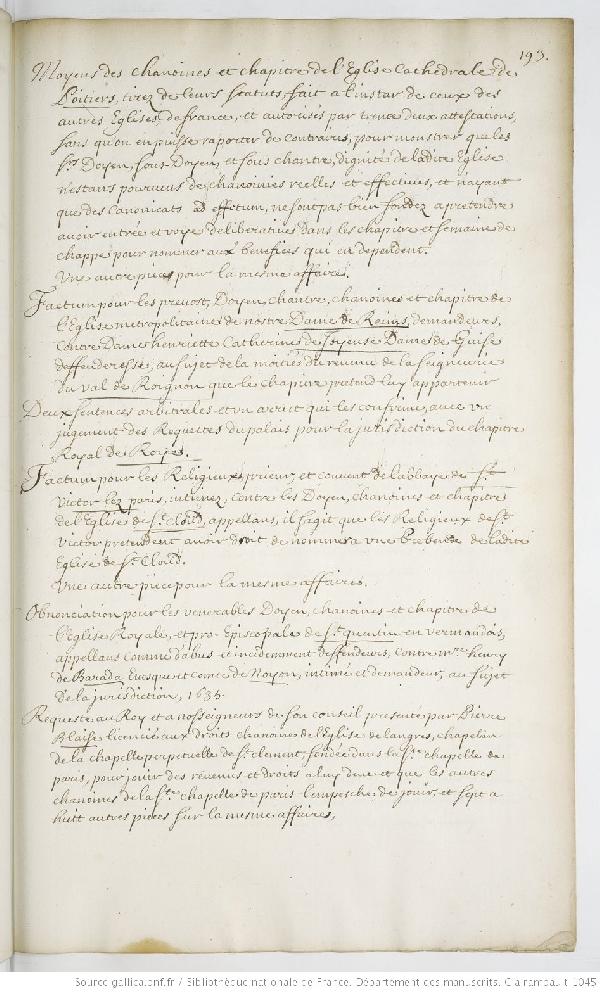 193.
Moyens des chanoines et chapitre de l'Eglise Cathedrale de
Poitiers, tirez de leurs statuts, fait a l'instar de ceux des
autres Eglises de france, et autorisés par trente deux attestations,
sans qu'on en puisse raporter de contraires, pour monstrer que les
Srs Doyen, sous-Doyen, et sous chantre, dignité de ladite Eglise
n'estans pourveus de chanoinies reelles et effectives, et n'ayant
que des Canonicats ad effectum, ne sont pas bien fondez a pretendre
avoir entrée et voye deliberatives dans les chapitre et semaine de
chappe pour nommer aux benefices qui en dependent.
Une autre piece pour la mesme affaire.
Factum pour les prevost, Doyen, chantre, chanoines et chapitre de
l'Eglise metropolitaine de nostre Dame de Reims, demandeurs,
contre Dame henriette Catherine de Joyeuse Dame de Guise
deffenderesse, au sujet de la moitié du revenu de la seigneurie
du val de Roignon que le chapitre pretend luy appartenir
Deux sentences arbitrales et un arrest qui les confirme, avec un
jugement des Requettes du palais pour la jurisdiction du chapitre
Royal de Roye.
Factum pour les Religieux, prieur, et couvent de l'abbaye de St.
Victor lez paris, intimez, contre les Doyen, chanoines et chapitre
de l'Eglise de St. Cloud, appellans, il s'agit que les Religieux de St.
victor pretendent avoir droit de nommer a une prebende de ladite
Eglise de St. Cloud.
Une autre piece pour la mesme affaire.
pour les venerables Doyen, chanoines et chapitre de
l'Eglise Royale, et pro-Episcopale de St. quentin en vermandois,
appellans comme d'abus et incidemment deffendeurs, contre mre. henry
de Barada Evesque et comte de Noyon, intimé et demandeur, au sujet
de la jurisdiction, 1635.
Requeste au Roy et a nosseigneurs de son conseil presentée par Pierre
Blaise licencié aux droits chanoine de l'Eglise de langres, chapelin
de la chapelle perpetuelle de St. clement, fondée dans la Ste. chapelle de
paris, pour jouir des revenus et droits a luy deue et que les autres
chanoines de la Ste. chapelle de paris l'empesche de jouir, et sept a
huitt autres pieces sur la mesme affaire.
Source gallica.bnf.fr / Bibliothèque nationale de France. Département des manuscrits. Clairambault 1045